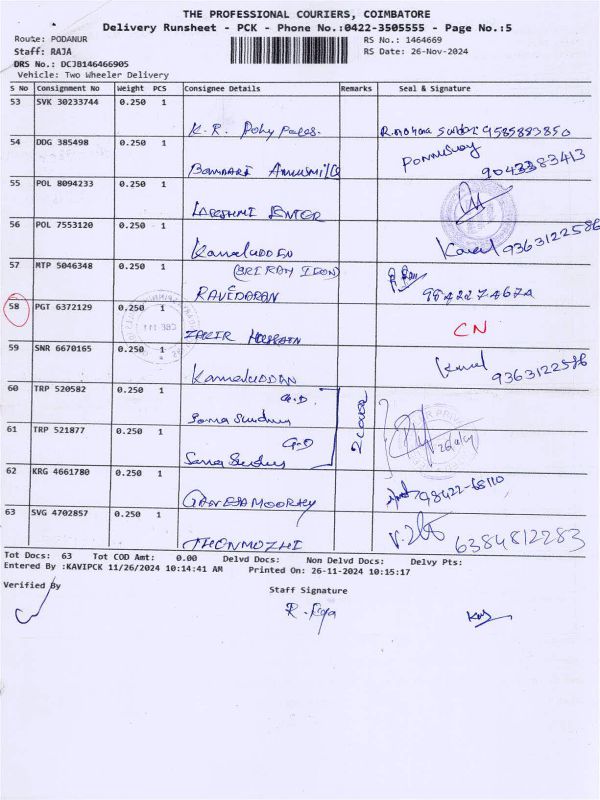 THE PROFESSIONAL COURIERS, COIMBATORE
Delivery Runsheet - PCK - Phone No.:0422-3505555 - Page No.:5
Route: PODANUR RS No.: 1464669
Staff: RAJA RS Date: 26-Nov-2024
DRS No.: DCJB146466905
Vehicle: Two Wheeler Delivery
S No Consignment No Weight PCS Consignee Details Remarks Seal & Signature
53 SVK 30233744 0.250 1
K.R. Poly Packs. 9585883850
54 DDG 385498 0.250 1
Ponnusamy
9043383413
55 POL 8094233 0.250 1
LAKSHMI CENTER
56 POL 7553120 0.250 1
Kamaluddin Kamal 9363122586
57 MTP 5046348 0.250 1
(SRI RAM IRON)
RAVEDARAN
58 PGT 6372129 0.250 1
ZAKIR HUSSAIN CN
59 SNR 6670165 0.250 1
Kamaluddin Kamal 9363122586
60 TRP 520582 0.250 1 G.D
2 cover
61 TRP 521877 0.250 1 G.D
62 KRG 4661780 0.250 1
GANESAMOORTHY 98422-68110
63 SVG 4702857 0.250 1
THENMOZHI 6384812283
Tot Docs: 63 Tot COD Amt: 0.00 Delvd Docs: Non Delvd Docs: Delvy Pts:
Entered By :KAVIPCK 11/26/2024 10:14:41 AM Printed On: 26-11-2024 10:15:17
Verified By Staff Signature
R. Raja